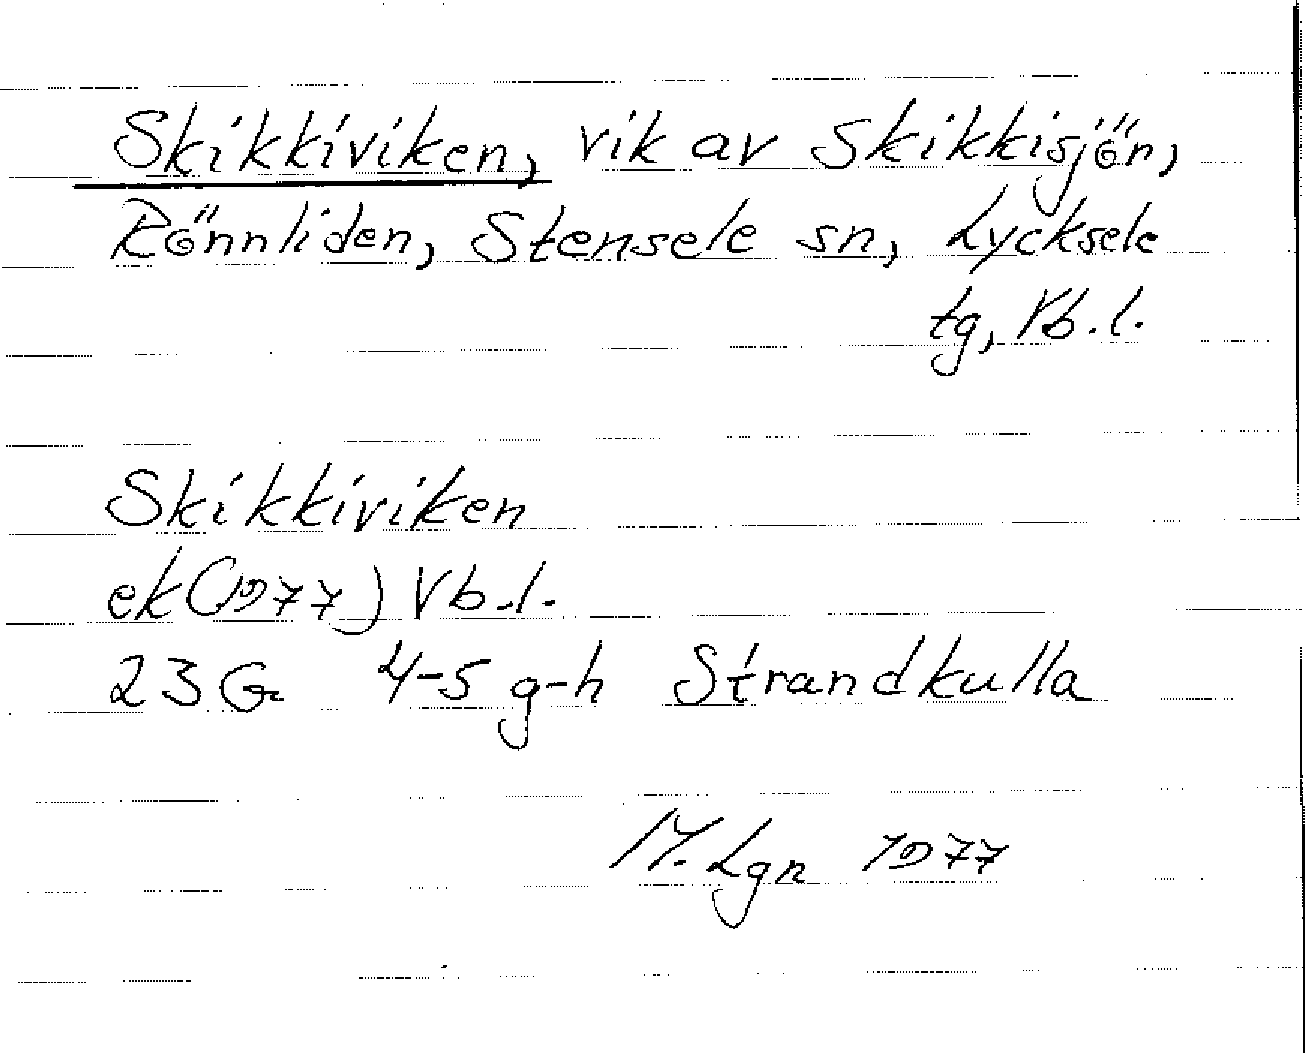 Skikkiviken, vik av Skikkisjön,
Rönnliden, Stensele sn, Lycksele
tg, Vb.l.
Skikkiviken
ek (1977) Vb.l.
23 G 4-5 g-h Strandkulla
M. Lgn 1977